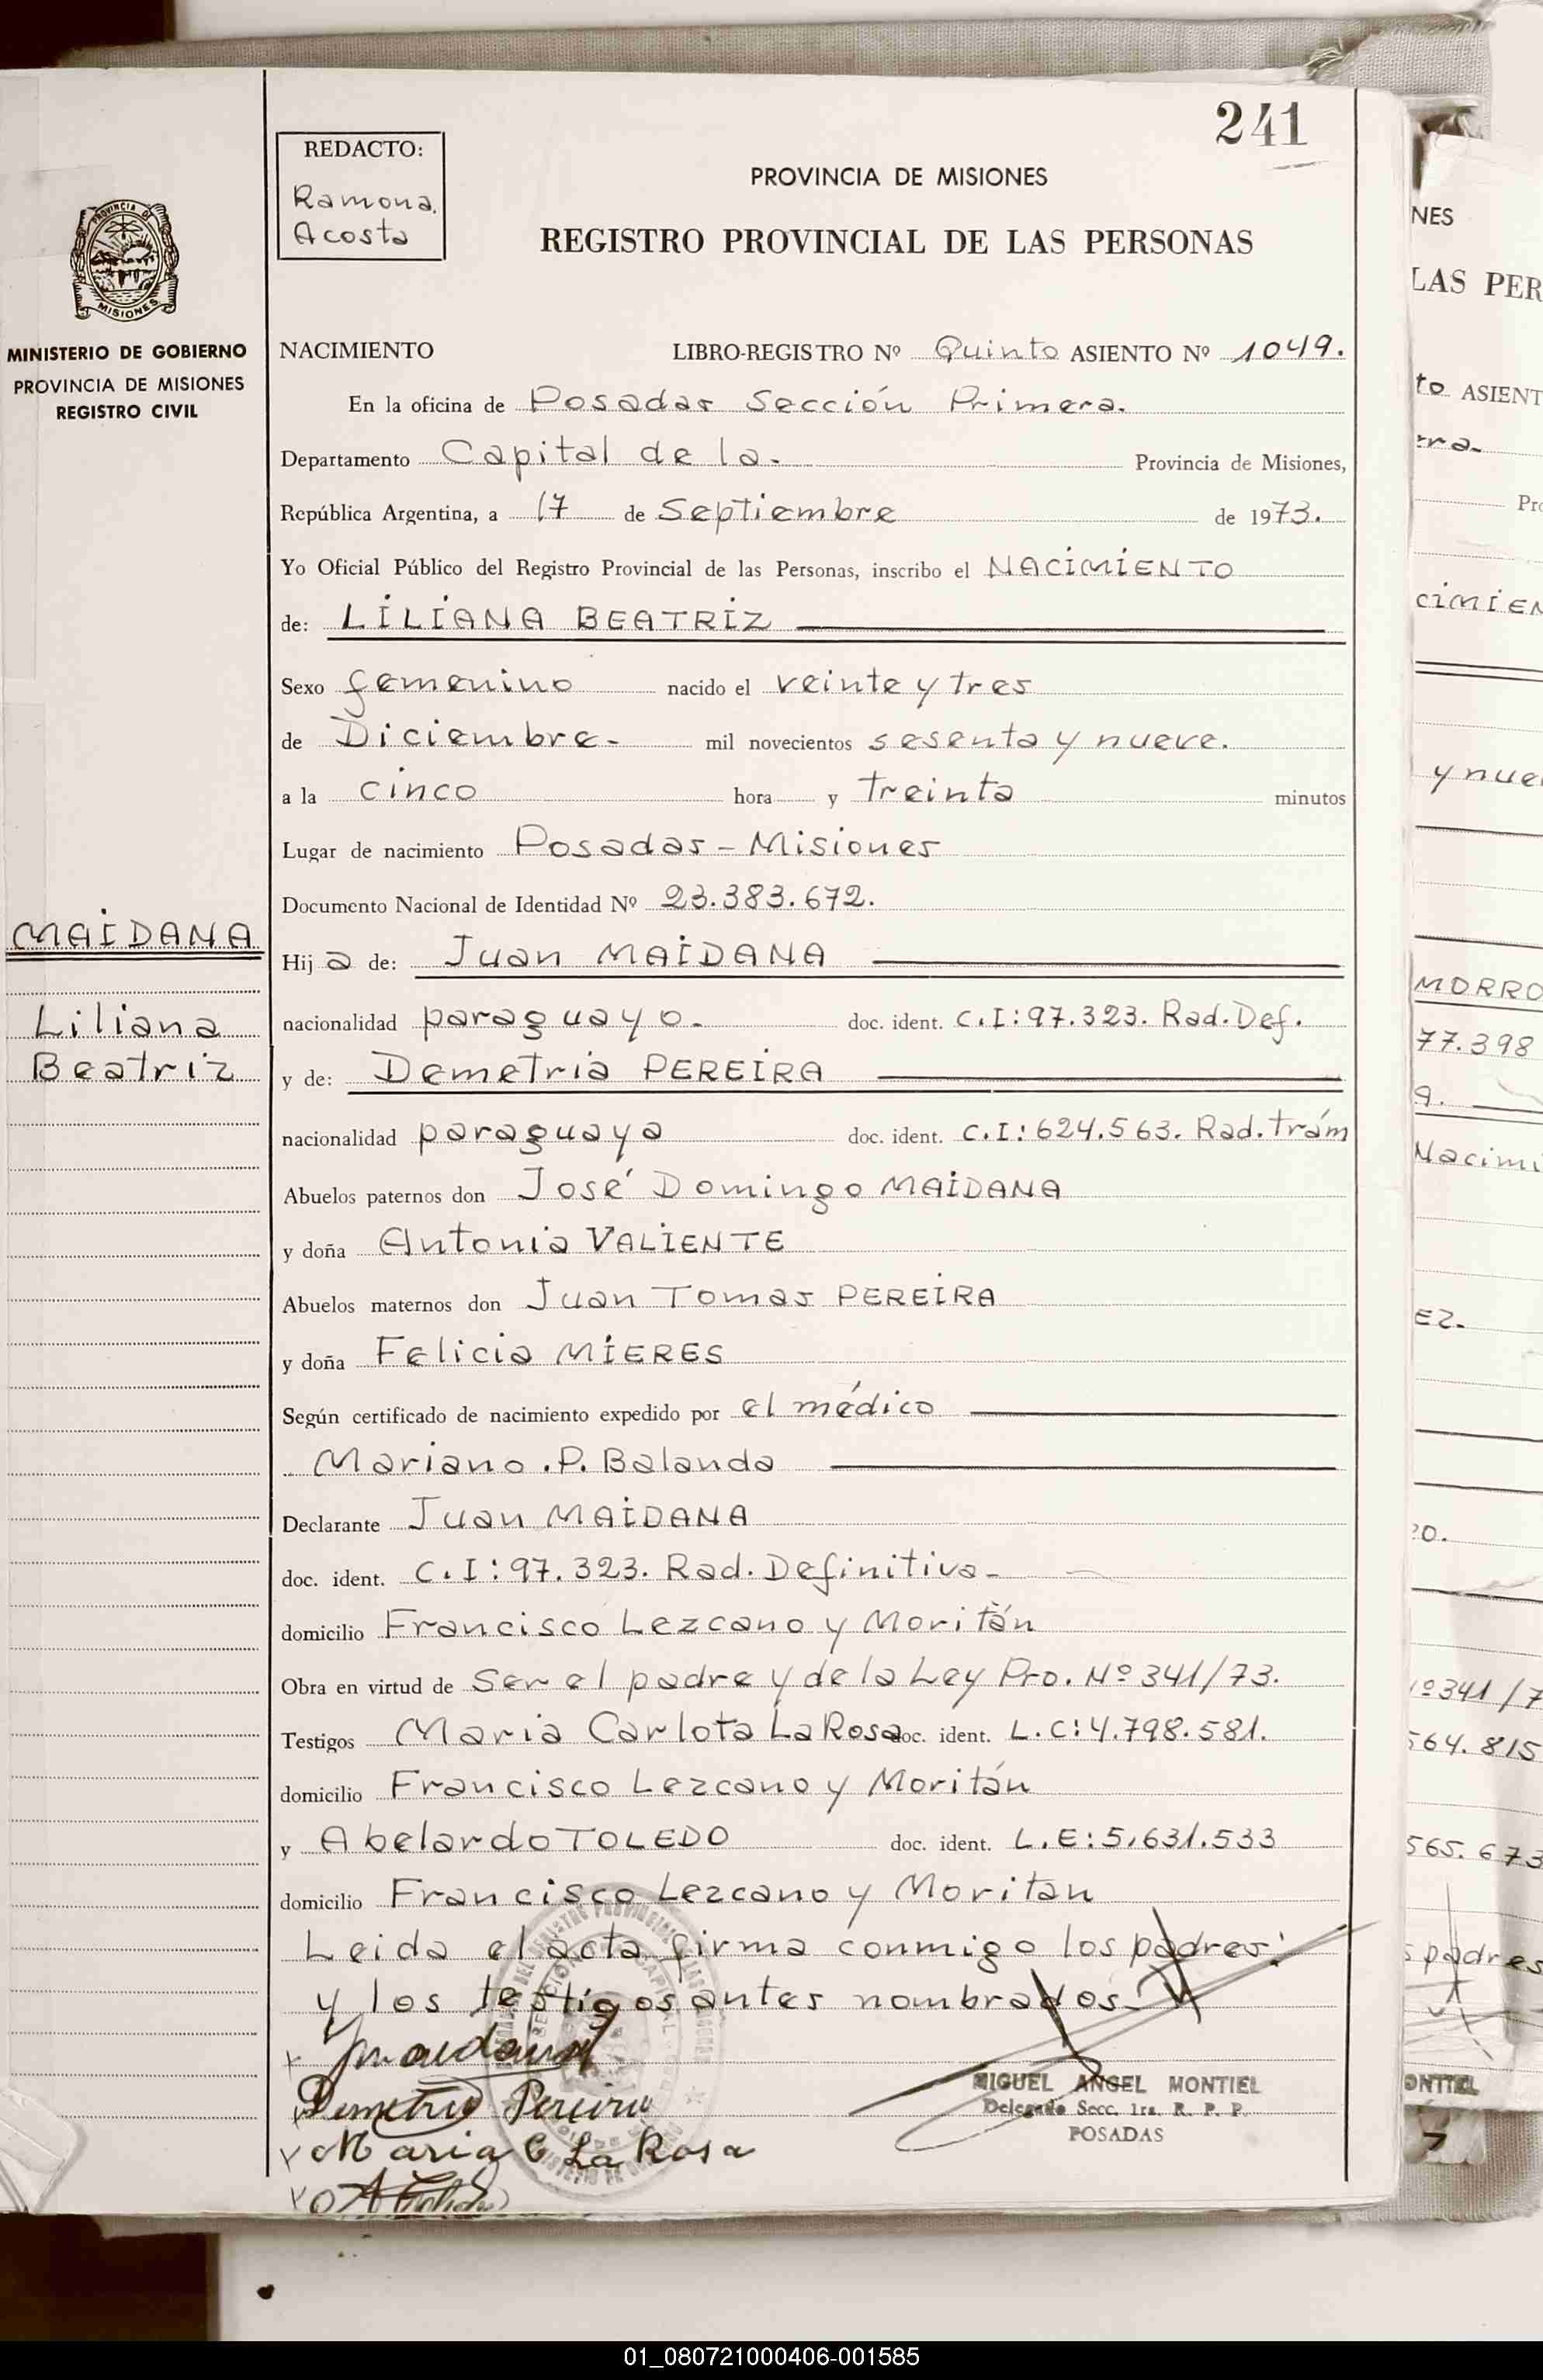 241
REDACTO:
Ramona.
Acosta
PROVINCIA DE MISIONES
REGISTRO PROVINCIAL DE LAS PERSONAS
PROVINCIA DE
MISIONES
MINISTERIO DE GOBIERNO
PROVINCIA DE MISIONES
REGISTRO CIVIL
NACIMIENTO LIBRO-REGISTRO Nº Quinto ASIENTO Nº 1049.
En la oficina de Posadas Sección Primera.
Departamento Capital de la.- Provincia de Misiones,
República Argentina, a 17 de Septiembre de 1973.
Yo Oficial Público del Registro Provincial de las Personas, inscribo el NACIMIENTO
de: LILIANA BEATRIZ
Sexo femenino nacido el veinte y tres
de Diciembre.- mil novecientos sesenta y nueve.
a la cinco hora y treinta minutos
Lugar de nacimiento Posadas - Misiones
Documento Nacional de Identidad Nº 23.383.672.
MAIDANA
Liliana
Beatriz
Hij a de: Juan MAIDANA
nacionalidad paraguayo.- doc. ident. C.I:97.323. Rad.Def.
y de: Demetria PEREIRA
nacionalidad paraguaya doc. ident. C.I:624.563. Rad.trám
Abuelos paternos don José Domingo MAIDANA
y doña Antonia VALIENTE
Abuelos maternos don Juan Tomas PEREIRA
y doña Felicia MIERES
Según certificado de nacimiento expedido por el médico
Mariano .P. Balanda
Declarante Juan MAIDANA
doc. ident. C.I:97.323. Rad. Definitiva.-
domicilio Francisco Lezcano y Moritán
Obra en virtud de Ser el padre y de la Ley Pro. Nº 341/73.
Testigos Maria Carlota La Rosa doc. ident. L.C:4.798.581.
domicilio Francisco Lezcano y Moritán
y Abelardo TOLEDO doc. ident. L.E:5.631.533
domicilio Francisco Lezcano y Moritan
Leida el acta firma conmigo los padres
y los testigos antes nombrados.-
Jmaidana
Demetria Pereira
Maria C La Rosa
MIGUEL ANGEL MONTIEL
Delegado Secc. 1ra. R. P. P.
POSADAS
NES
LAS PER
to ASIENT
rra.-
Pro
cimien
y nue
MORRO
77.398
9.
Nacimi
EZ.-
20.
º341/7
564.815
565.673
s padres
ONTIEL
01_080721000406-001585